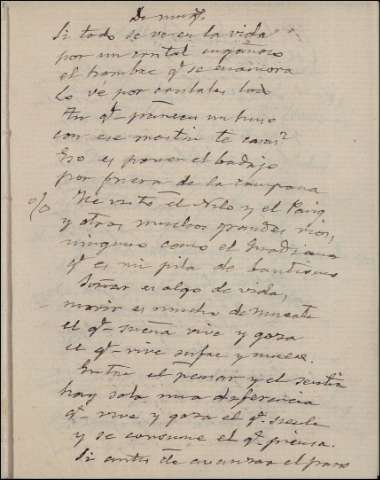 Si todo se ve en la vida
por un cristal engañoso
el hombre q.e se enamora
lo vé por cristales
con ese te
Eso es poner el badajo
por fuera de la campana
He visto el Nilo y el
y otros muchos grandes rios,
ninguno como el Guadiana
q.e es mi pila de bautismo
Soñar es algo de vida,
morir es mucho de muerte
el q.e sueña vive y goza
el q.e vive sufre y muere.
Entre el pensar y el sentir
hay sola una diferencia
q.e vive y goza el q.e siente
y se consume el q.e piensa.
Si antes de avanzar el paso